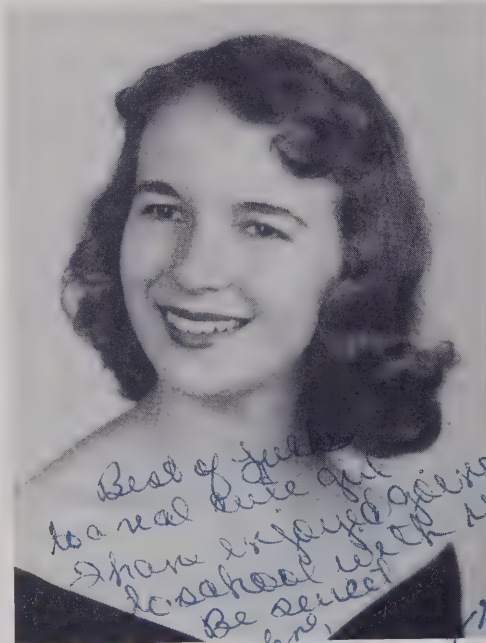 Best of luck
to a real cute girl
I have enjoyed going
to school with
Be sweet